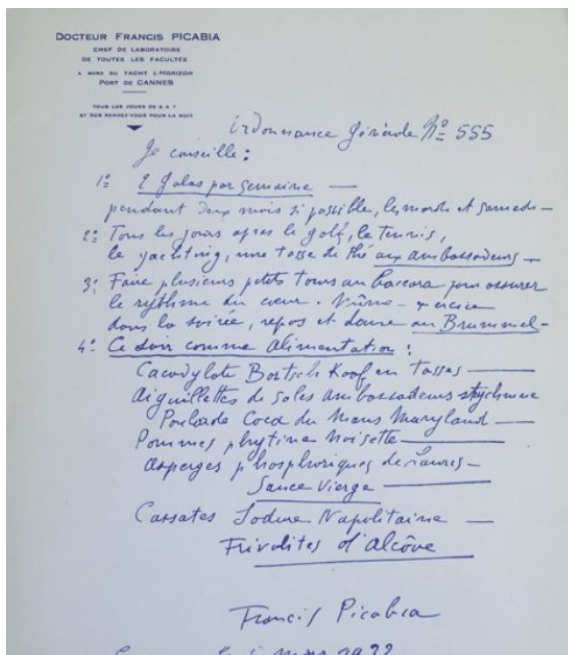 DOCTEUR FRANCIS PICABIA
CHEF DE LABORATOIRE
DE TOUTES LES FACULTÉS
A BORD DU YACHT L'HORIZON
PORT DE CANNES
TOUS LES JOURS DE 5 A 7
ET SUR RENDEZ-VOUS POUR LA NUIT
Ordonnance Générale Nº 555
Je conseille :
1º 2 Galas par semaine —
pendant deux mois si possible, les mardi et samedi —
2º Tous les jours après le golf, le tennis,
le yachting, une tasse de thé aux ambassadeurs —
3º Faire plusieurs petits tours au baccara pour assurer
le rythme du cœur.
dans la soirée, repos et danse au Brummel —
4º Ce soir comme alimentation :
Cacodylate Bortsch Koof en Tasses —
Aiguillettes de soles ambassadeurs strychnine
Poularde Coca du Mans Maryland —
Pommes phytine noisette —
Asperges phosphoriques de Lauris —
Sauce Vierge —
Cassates Iodure Napolitaine —
Frivolités d'alcôve
Francis Picabia
mars 1932